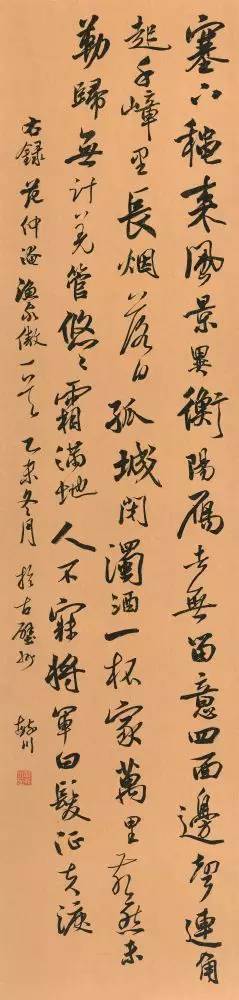 塞下穐来風景異衡陽鴈去無留意四面邊聲連角
起千嶂里長烟落日孤城閉濁酒一杯家萬里燕然未
勒歸無計羌管悠々霜滿地人不寐將軍白髮征夫淚
右録范仲淹漁家傲一首乙未冬月於古壁州川